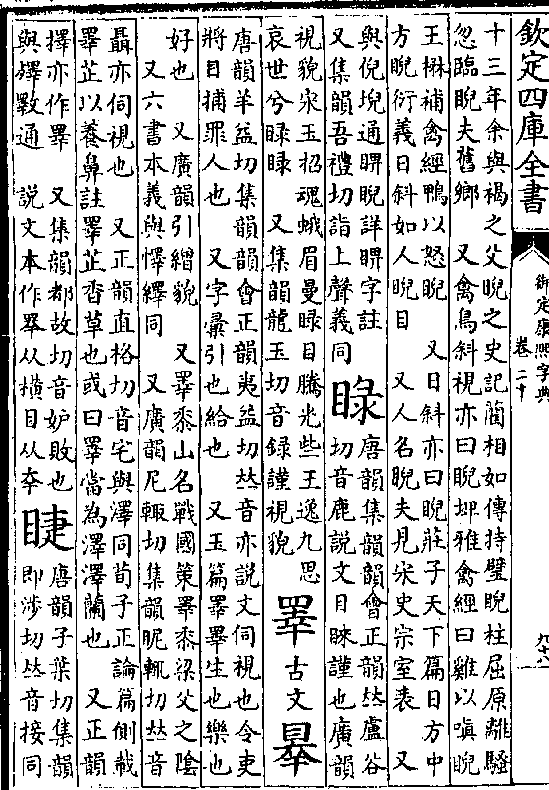 欽定四庫全書
御定康熙字典
卷二十
九十八
十三年余與褐之父睨之史記藺相如傳持璧睨柱屈原離騷
忽臨睨夫舊鄉　又禽鳥斜視亦曰睨埤雅禽經曰雞以嗔睨
王楙補禽經鴨以怒睨　又日斜亦曰睨莊子天下篇日方中
方睨衍義日斜如人睨目　又人名睨夫見宋史宗室表　又
與倪堄通睤睨詳睤字註
又集韻吾禮切詣上聲義同
睩
唐韻集韻韻會正韻𠀤盧谷
切音鹿說文目睞謹也廣韻
視貌宋玉招魂蛾眉曼睩目騰光些王逸九思
哀世兮睩睩　又集韻龍玉切音録謹視貌
睪
古文
𥇡
唐韻羊益切集韻韻會正韻夷益切𠀤音亦說文伺視也令吏
將目捕罪人也　又字彙引也給也　又玉篇睪睪生也樂也
好也　又廣韻引繒貌　又睪黍山名戰國策睪黍梁父之陰
又六書本義與懌繹同　又廣韻尼輒切集韻昵輒切𠀤音
聶亦伺視也　又正韻直格切音宅與澤同荀子正論篇側載
睪芷以養鼻註睪芷香草也或曰睪當為澤澤蘭也　又正韻
擇亦作睪　又集韻都故切音妒敗也
與殬斁通　說文本作睪从橫目从㚔
睫
唐韻子葉切集韻
即涉切𠀤音接同